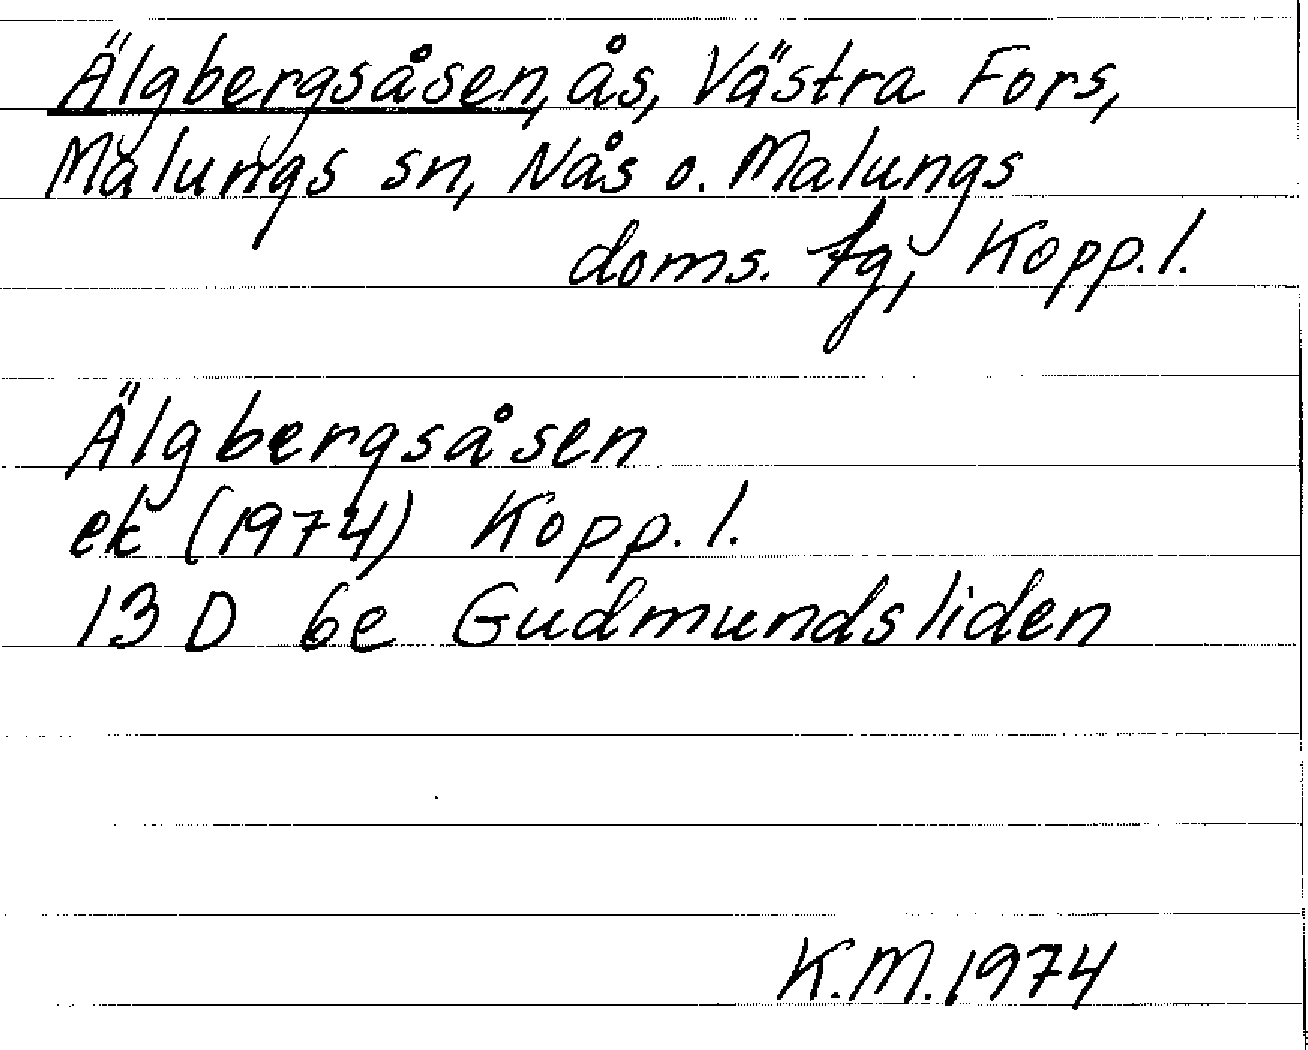 Älgbergsåsen, ås, Västra Fors,
Malungs sn, Nås o. Malungs
doms. tg, Kopp. l.
Älgbergsåsen
ek (1974) Kopp. l.
13 D 6e Gudmundsliden
K.M. 1974